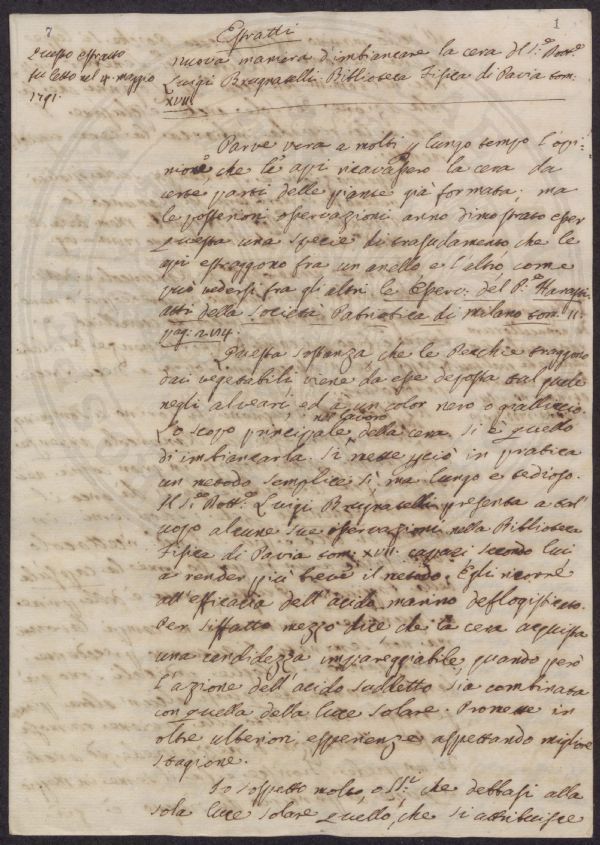 7
1
Estratti
Questo estratto
fu letto nel 4. maggio
1791.
nuova maniera d'imbiancare la cera del S.r Dott.e
Luigi Brugnatelli Biblioteca Fisica di Pavia tom.
XVII
Parve vera a molti p lungo tempo l'opi-
nione che le api ricavassero la cera da
certe parti delle piante già formata; ma
le posteriori osservazioni anno dimostrato esser
questa una specie di trasudamento che le
api estraggono fra un anello e l'altro come
può vedersi fra gli altri le Esper: del P.
atti della Società Patriotica di Milano tom. II.
pag:
Questa sostanza che le Pecchie traggono
dai vegetabili viene da esse deposta sul
negli alveari ed à un color nero o gialliccio.
nel lavoro
Lo scopo principale della cera si è quello
di imbiancarla. Si mette p ciò in pratica
un metodo semplice sì ma lungo e tedioso.
Il S.r Dott.r Luigi Brugnatelli presenta a tal
uopo alcune sue osservazioni nella Biblioteca
Fisica di Pavia tom. XVII. capaci secondo lui
a render più breve il metodo. Egli ricorre
all'efficacia dell'acido marino deflogisticato.
Per siffatto mezzo dice, che la cera acquista
una candidezza impareggiabile, quando però
l'azione dell'acido suddetto sia combinata
con quella della luce solare. Promette in
oltre ulteriori esperienze aspettando migliore
stagione.
Io sospetto molto, o SS.ri che debbasi alla
sola luce solare quello, che si attribuisce